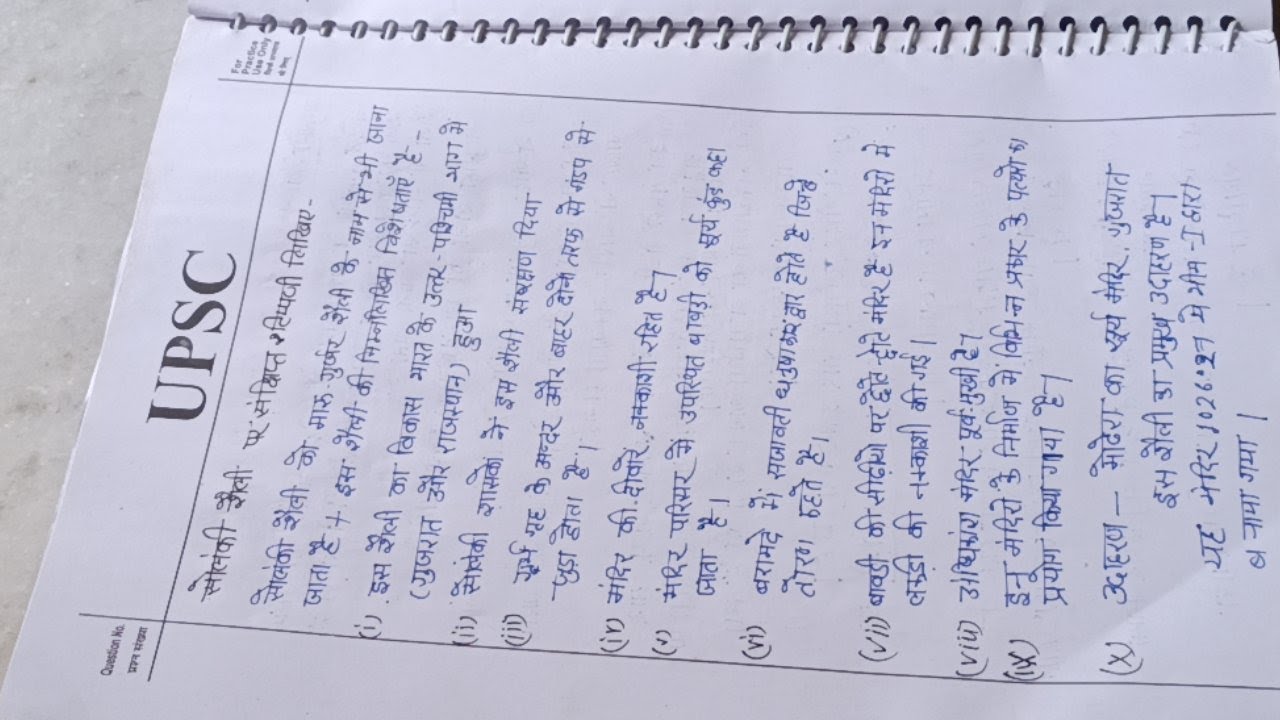 UPSC
Question No.
प्रश्न संख्या
For
Practice
Use Only
सोलंकी शैली पर संक्षिप्त टिप्पणी लिखिए-
सोलंकी शैली को मारू गुर्जर शैली के नाम से भी जाना
जाता है। इस शैली की निम्नलिखित विशेषताएँ है -
(i) इस शैली का विकास भारत के उत्तर-पश्चिमी भाग में
(गुजरात और राजस्थान) हुआ
(ii) सोलंकी शासकों ने इस शैली संरक्षण दिया
(iii) गर्भ गृह के अन्दर और बाहर दोनों तरफ से मंडप से
जुड़ा होता है।
(iv) मंदिर की दीवारें, नक्काशी रहित है।
(v) मंदिर परिसर में उपस्थित बावड़ी को सूर्य कुंड कहा
जाता है।
(vi) बरामदे में सजावती धनुषाकार द्वार होते है जिन्हे
तोरण कहते है।
(vii) बावडी की सीढ़ीयो पर छोटे छोटे मंदिर है इन मंदिरो में
लकड़ी की नक्काशी की गई।
(viii) अधिकांश मंदिर पूर्व-मुखी है।
(ix) इन मंदिरो के निर्माण में विभिन्न प्रकार के पत्थरो का
प्रयोग किया गया है।
(x) उदाहरण - मोढेरा का सूर्य मंदिर, गुजरात
इस शैली का प्रमुख उदाहरण है।
यह मंदिर 1026-27 मे भीम-I द्वारा
बनाया गया।